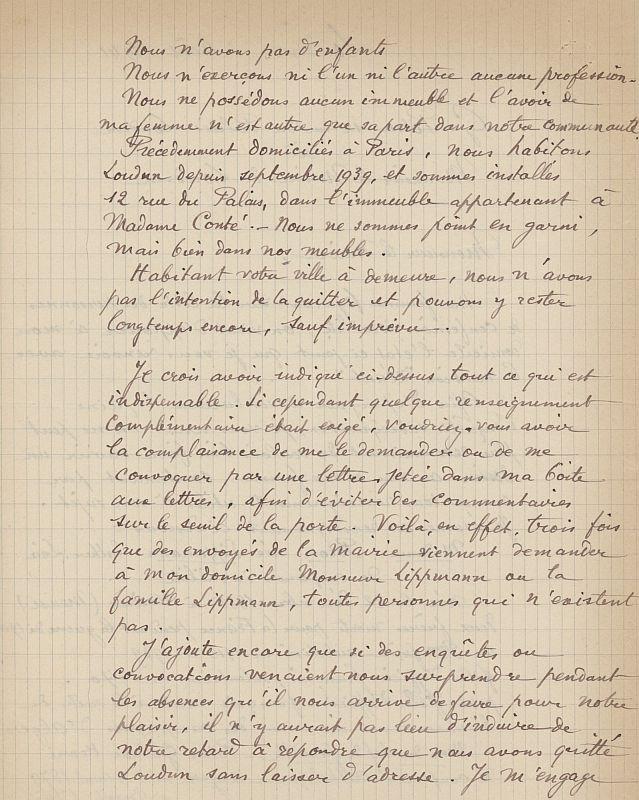 Nous n'avons pas d'enfants
Nous n'exerçons ni l'un ni l'autre aucune profession.
Nous ne possédons aucun immeuble et l'avoir de
ma femme n'est autre que sa part dans notre communauté.
Précédemment domiciliés à Paris, nous habitons
Loudun depuis septembre 1939, et sommes installés
12 rue du Palais, dans l'immeuble appartenant à
Madame Conté. - Nous ne sommes point en garni,
mais bien dans nos meubles.
Habitant votre ville à demeure, nous n'avons
pas l'intention de la quitter et pouvons y rester
longtemps encore, sauf imprévu.
Je crois avoir indiqué ci-dessus tout ce qui est
indispensable. Si cependant quelque renseignement
complémentaire était exigé, voudriez-vous avoir
la complaisance de me le demander ou de me
convoquer par une lettre jetée dans ma boite
aux lettres, afin d'éviter des commentaires
sur le seuil de la porte. Voilà, en effet, trois fois
que des envoyés de la mairie viennent demander
à mon domicile Monsieur Lippmann ou la
famille Lippmann, toutes personnes qui n'existent
pas.
J'ajoute encore que si des enquêtes ou
convocations venaient nous surprendre pendant
les absences qu'il nous arrive de faire pour notre
plaisir, il n'y aurait pas lieu d'induire de
notre retard à répondre que nous avons quitté
Loudun sans laisser d'adresse. Je m'engage